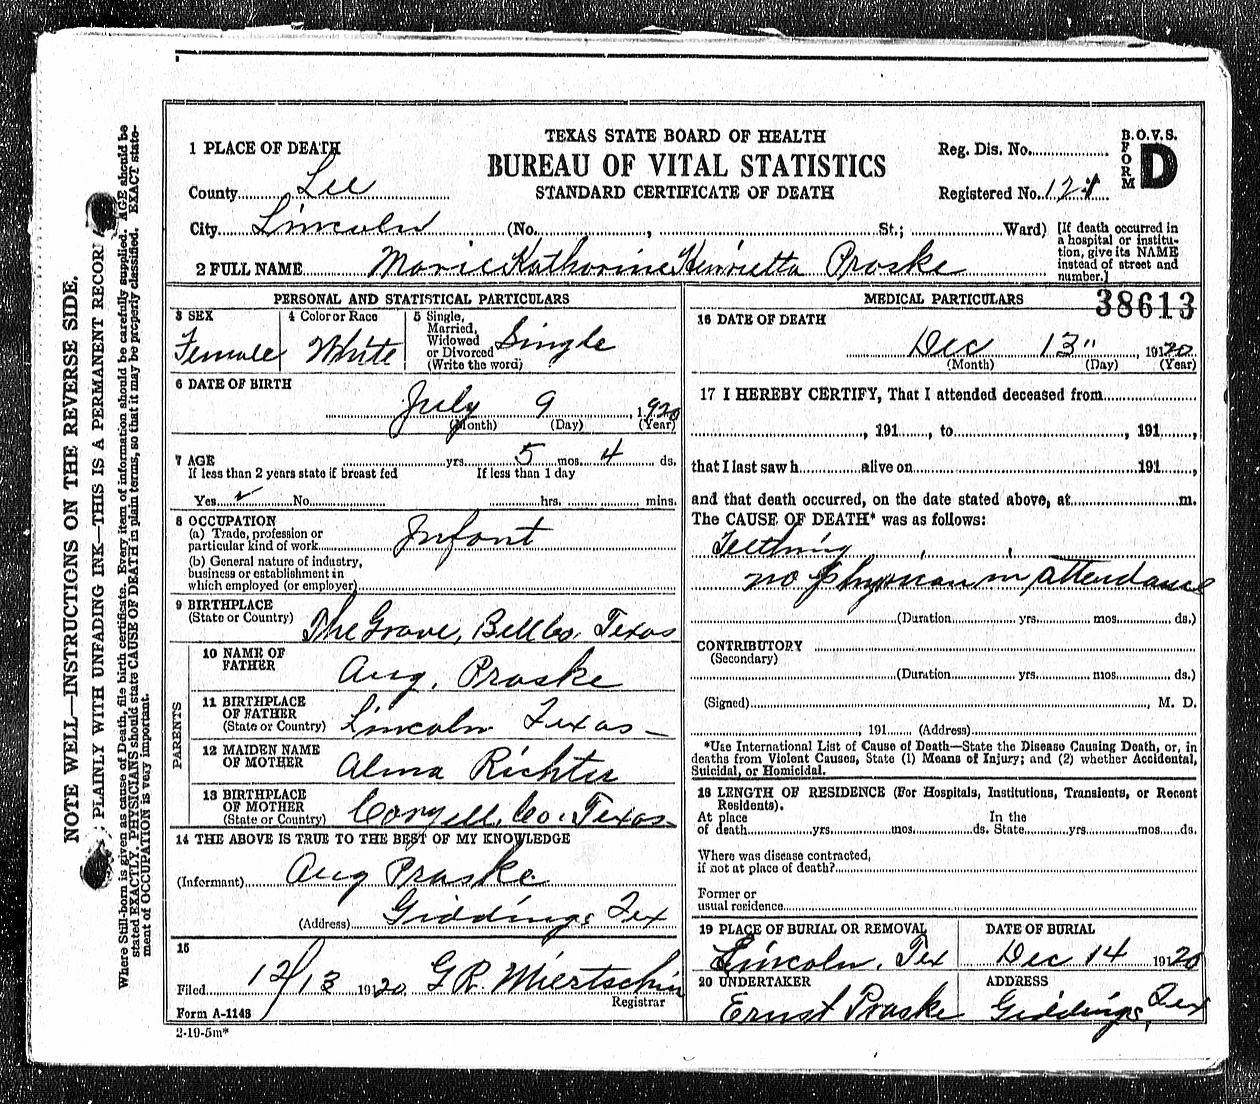 TEXAS STATE BOARD OF HEALTH
BUREAU OF VITAL STATISTICS
STANDARD CERTIFICATE OF DEATH
B.O.V.S.
FORM D
Reg. Dis. No.
Registered No.
1 PLACE OF DEATH
County Lee
City Lincoln (No. , St.; Ward)
[If death occurred in
a hospital or institu-
tion, give its NAME
instead of street and
number.]
2 FULL NAME Marie Katharine Henrietta Proske
PERSONAL AND STATISTICAL PARTICULARS
3 SEX
Female
4 Color or Race
White
5 Single,
Married,
Widowed
or Divorced
(Write the word)
Single
6 DATE OF BIRTH
July 9, 1920
(Month) (Day) (Year)
7 AGE yrs. 5 mos. 4 ds.
If less than 2 years state if breast fed If less than 1 day
Yes ✓ No. hrs. mins.
8 OCCUPATION
(a) Trade, profession or
particular kind of work Infant
(b) General nature of industry,
business or establishment in
which employed (or employer)
9 BIRTHPLACE
(State or Country) The Grove, Bell Co. Texas
PARENTS
10 NAME OF
FATHER Aug. Proske
11 BIRTHPLACE
OF FATHER
(State or Country) Lincoln Texas
12 MAIDEN NAME
OF MOTHER Alma Richter
13 BIRTHPLACE
OF MOTHER
(State or Country) Coryell. Co. Texas
14 THE ABOVE IS TRUE TO THE BEST OF MY KNOWLEDGE
(Informant) Aug Proske
(Address) Giddings Tex
15
Filed 12/13 1920 G R. Miertschin
Registrar
Form A-1143
2-19-5m*
MEDICAL PARTICULARS
38613
16 DATE OF DEATH
Dec 13", 1920
(Month) (Day) (Year)
17 I HEREBY CERTIFY, That I attended deceased from
, 191 , to , 191 ,
that I last saw h alive on 191 ,
and that death occurred, on the date stated above, at m.
The CAUSE OF DEATH* was as follows:
Teething
no physician in attendance
(Duration yrs. mos. ds.)
CONTRIBUTORY
(Secondary)
(Duration yrs. mos. ds.)
(Signed) , M. D.
, 191 (Address)
*Use International List of Cause of Death—State the Disease Causing Death, or, in
deaths from Violent Causes, State (1) Means of Injury; and (2) whether Accidental,
Suicidal, or Homicidal.
18 LENGTH OF RESIDENCE (For Hospitals, Institutions, Transients, or Recent
Residents).
At place In the
of death yrs. mos. ds. State yrs. mos. ds.
Where was disease contracted,
if not at place of death?
Former or
usual residence
19 PLACE OF BURIAL OR REMOVAL
Lincoln, Tex
DATE OF BURIAL
Dec 14 1920
20 UNDERTAKER
Ernst Proske
ADDRESS
Giddings, Tex
NOTE WELL—INSTRUCTIONS ON THE REVERSE SIDE.
PLAINLY WITH UNFADING INK—THIS IS A PERMANENT RECORD
Where Still-born is given as cause of Death, file birth certificate. Every item of information should be carefully supplied. AGE should be
stated EXACTLY. PHYSICIANS should state CAUSE OF DEATH in plain terms, so that it may be properly classified. EXACT state-
ment of OCCUPATION is very important.